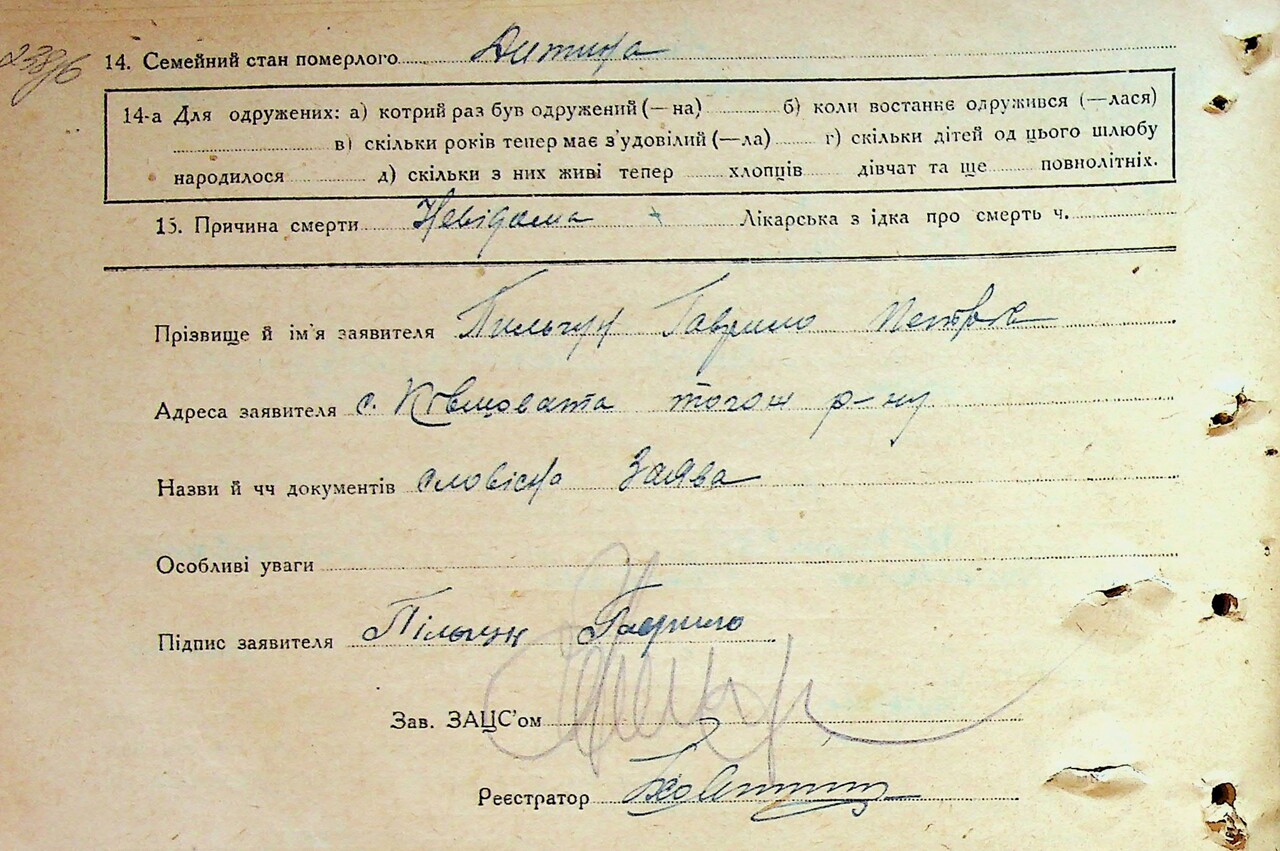 14. Семейний стан померлого Дитина
14-а Для одружених: а) котрий раз був одружений (—на) б) коли востаннє одружився (—лася)
в) скільки років тепер має з'удовілий (—ла) г) скільки дітей од цього шлюбу
народилося д) скільки з них живі тепер хлопців дівчат та ще повнолітніх.
15. Причина смерти Невідома Лікарська з ідка про смерть ч.
Прізвище й ім'я заявителя Пильчук Гаврило Петров
Адреса заявителя с. Ківшовата тогож р-ну
Назви й чч документів словісна Заява
Особливі уваги
Підпис заявителя Пільчук Гаврило
Зав. ЗАЦС'ом
Реєстратор